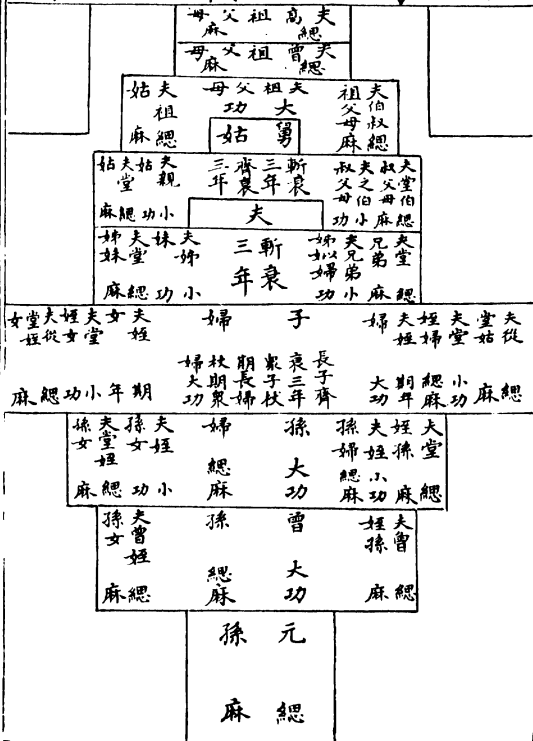 夫高祖父母
緦麻
夫曾祖父母
緦麻
夫伯叔祖父母
緦麻
夫祖父母
大功
夫祖姑
緦麻
舅姑
夫堂伯叔父母
緦麻
夫之伯叔父母
小功
斬衰三年
齊衰三年
夫親姑
小功
夫堂姑
緦麻
夫
夫堂兄弟
緦麻
夫兄弟姊姒婦
小功
斬衰三年
夫姊妹
小功
夫堂姊妹
緦麻
夫從堂姑
緦麻
夫堂姪
小功
姪婦
緦麻
夫姪
期年
婦
大功
子
長子齊衰三年
衆子杖期
婦
長婦杖期
衆婦大功
夫姪女
期年
夫堂姪女
小功
夫從堂姪女
緦麻
大堂姪孫
緦麻
夫姪孫
小功
孫婦
緦麻
孫
大功
婦
緦麻
夫姪孫女
小功
夫堂姪孫女
緦麻
夫曾姪孫
緦麻
曾孫
大功
緦麻
夫曾姪孫女
緦麻
元孫
緦麻